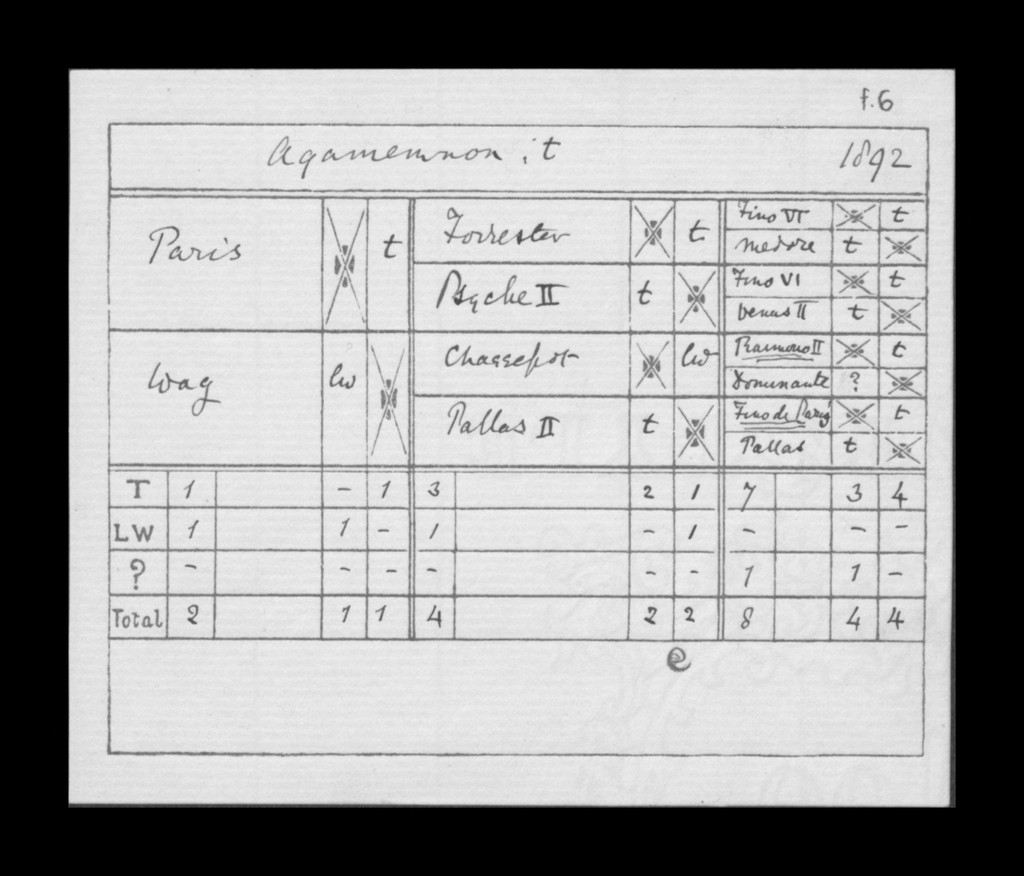 f.6
Agamemnon : t 1892
Paris t
Forrester t
Psyche II t
Fino VI t
Medore t
Fino VI t
Venus II t
Wag lw
Chassepot lw
Pallas II t
Ramono II t
Dominante ?
Fino de Paris t
Pallas t
T 1 - 1 3 2 1 7 3 4
LW 1 1 - 1 - 1 - - -
? - - - - - - 1 1 -
Total 2 1 1 4 2 2 8 4 4